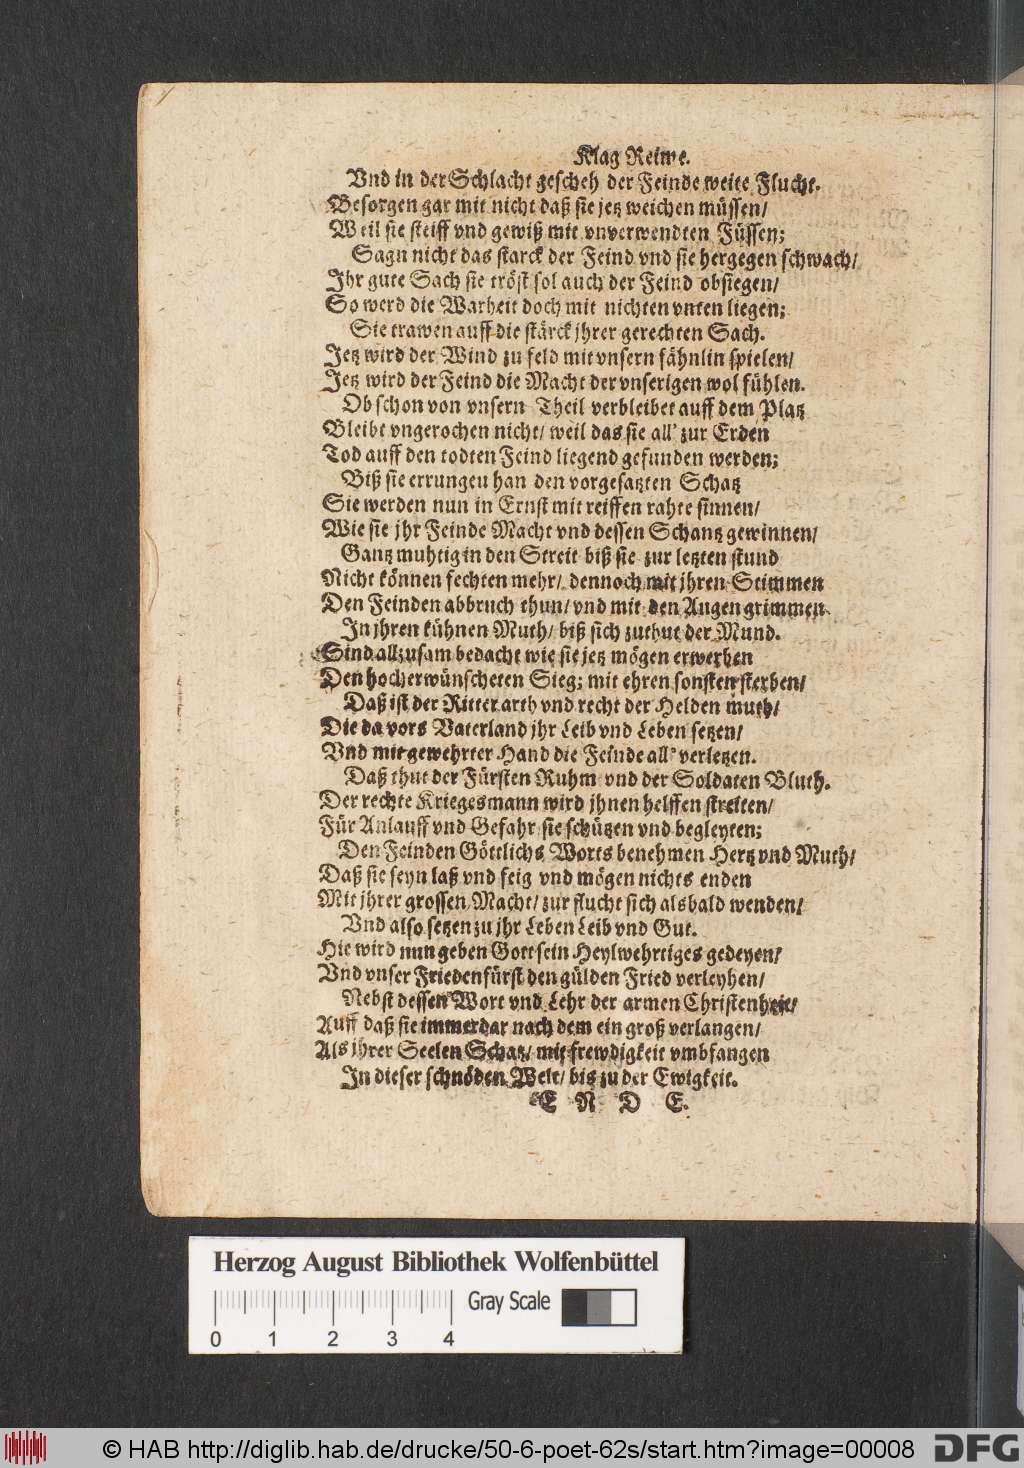 Klag Reime.
Vnd in der Schlacht gescheh der Feinde weite Flucht.
Besorgen gar mit nicht daß sie jetz weichen müssen/
Weil sie steiff vnd gewiß mit vnverwendten Füssen;
Sagn nicht das starck der Feind vnd sie hergegen schwach/
Ihr gute Sach sie tröst sol auch der Feind obsiegen/
So werd die Warheit doch mit nichten vnten liegen;
Sie trawen auff die stärck jhrer gerechten Sach.
Jetz wird der Wind zu feld mit vnsern fähnlin spielen/
Jetz wird der Feind die Macht der vnserigen wol fühlen.
Ob schon von vnsern Theil verbleibet auff dem Platz
Bleibt vngerochen nicht/ weil das sie all' zur Erden
Tod auff den todten Feind liegend gefunden werden;
Biß sie errungeu han den vorgesatzten Schatz
Sie werden nun in Ernst mit reiffen rahte sinnen/
Wie sie jhr Feinde Macht vnd dessen Schantz gewinnen/
Gantz muhtig in den Streit biß sie zur letzten stund
Nicht können fechten mehr/ dennoch mit jhren Stimmen
Den Feinden abbruch thun/ vnd mit den Augen grimmen
In jhren kühnen Muth/ biß sich zuthut der Mund.
Sind allzusam bedacht wie sie jetz mögen erwerben
Den hocherwünscheten Sieg; mit ehren sonsten sterben/
Daß ist der Ritter arth vnd recht der Helden muth/
Die da vors Vaterland jhr Leib vnd Leben setzen/
Vnd mit gewehrter Hand die Feinde all' verletzen.
Daß thut der Fürsten Ruhm vnd der Soldaten Bluth.
Der rechte Kriegesmann wird jhnen helffen streiten/
Für Anlauff vnd Gefahr sie schützen vnd begleyten;
Den Feinden Göttlichs Worts benehmen Hertz vnd Muth/
Daß sie seyn laß vnd feig vnd mögen nichts enden
Mit jhrer grossen Macht/ zur flucht sich alsbald wenden/
Vnd also setzen zu jhr Leben Leib vnd Gut.
Hie wird nun geben Gott sein Heylwehrtiges gedeyen/
Vnd vnser Friedenfürst den gülden Fried verleyhen/
Nebst dessen Wort vnd Lehr der armen Christenheit/
Auff daß sie immerdar nach dem ein groß verlangen/
Als jhrer Seelen Schatz/ mit frewdigkeit vmbfangen
In dieser schnöden Welt/ bis zu der Ewigkeit.
E N D E.
Herzog August Bibliothek Wolfenbüttel
Gray Scale
0 1 2 3 4
© HAB http://diglib.hab.de/drucke/50-6-poet-62s/start.htm?image=00008
DFG